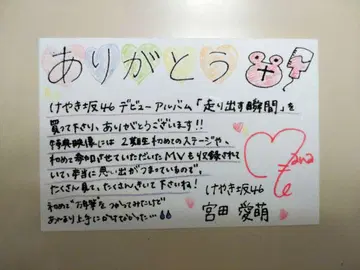 ありがとう
けやき坂46 デビューアルバム「走り出す瞬間」を
買って下さり、ありがとうございます!!
特典映像には2期生初めてのステージや、
初めて参加させていただいたMVも収録されて
いて本当に思い出がつまっているので、
たくさん見て、たくさんきいて下さいね!
初めて"万年筆"をつかってみたけど
あんまり上手にかけなかった…
Mana
けやき坂46
宮田 愛萌